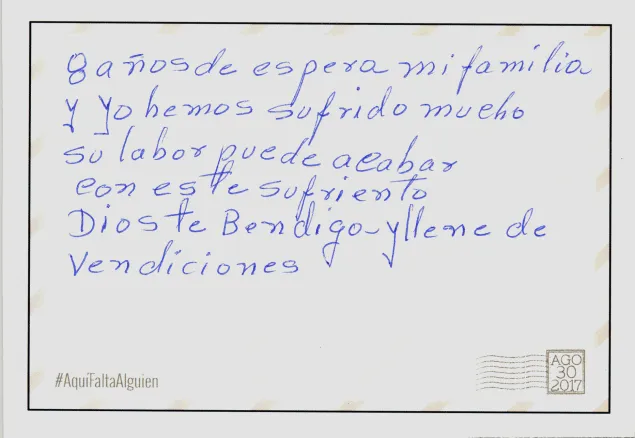 8 años de espera mi familia
y yo hemos sufrido mucho
su labor puede acabar
con este sufriento
Dios te Bendigo y llene de
Vendiciones
#AquíFaltaAlguien
AGO
30
2017